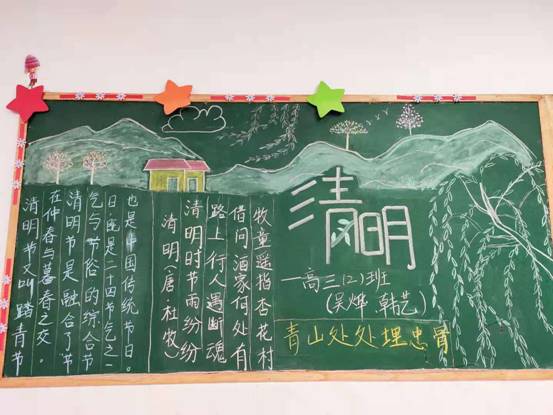 清明节又叫踏青节
在仲春与暮春之交。
清明节是融合了节
气与节俗的综合节
日,既是二十四节气之一
也是中国传统节日。
清明(唐·杜牧)
清明时节雨纷纷
路上行人遇断魂
借问酒家何处有
牧童遥指杏花村
清明
—高三(2)班
(吴烨、韩艺)
青山处处埋忠骨